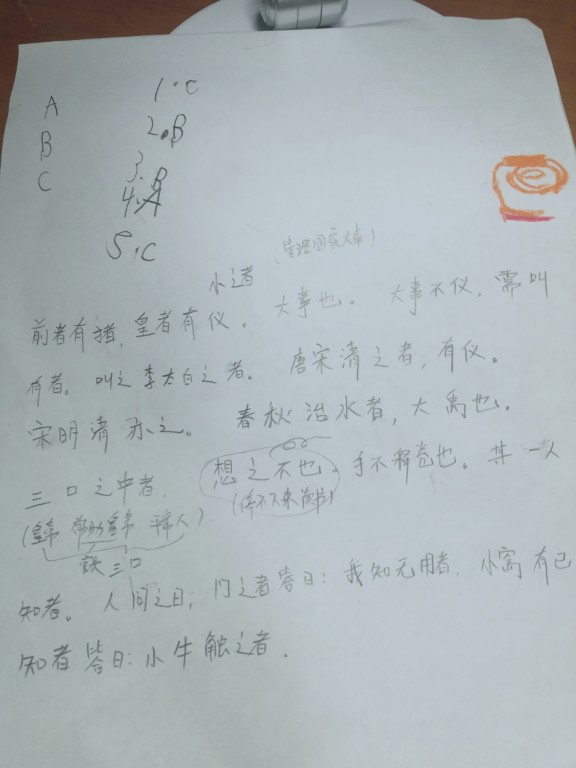 A 1.C
B 2.B
C 3.B
4.A
5.C
小之者
前者有猪，皇者有仪。大事也。大事不仪，需叫
有者。叫之李太白之者。唐宋清之者，有仪。
宋明清亦之。春秋治水者，大禹也。
三口之中者，想之不也，手不释卷也。其一人
(皇帝 帮助皇帝 平常人) (停不下来读书)
三口
知者。人间之曰，门之者答曰：我知无用者，小窝有已
知者答曰：小牛触之者。